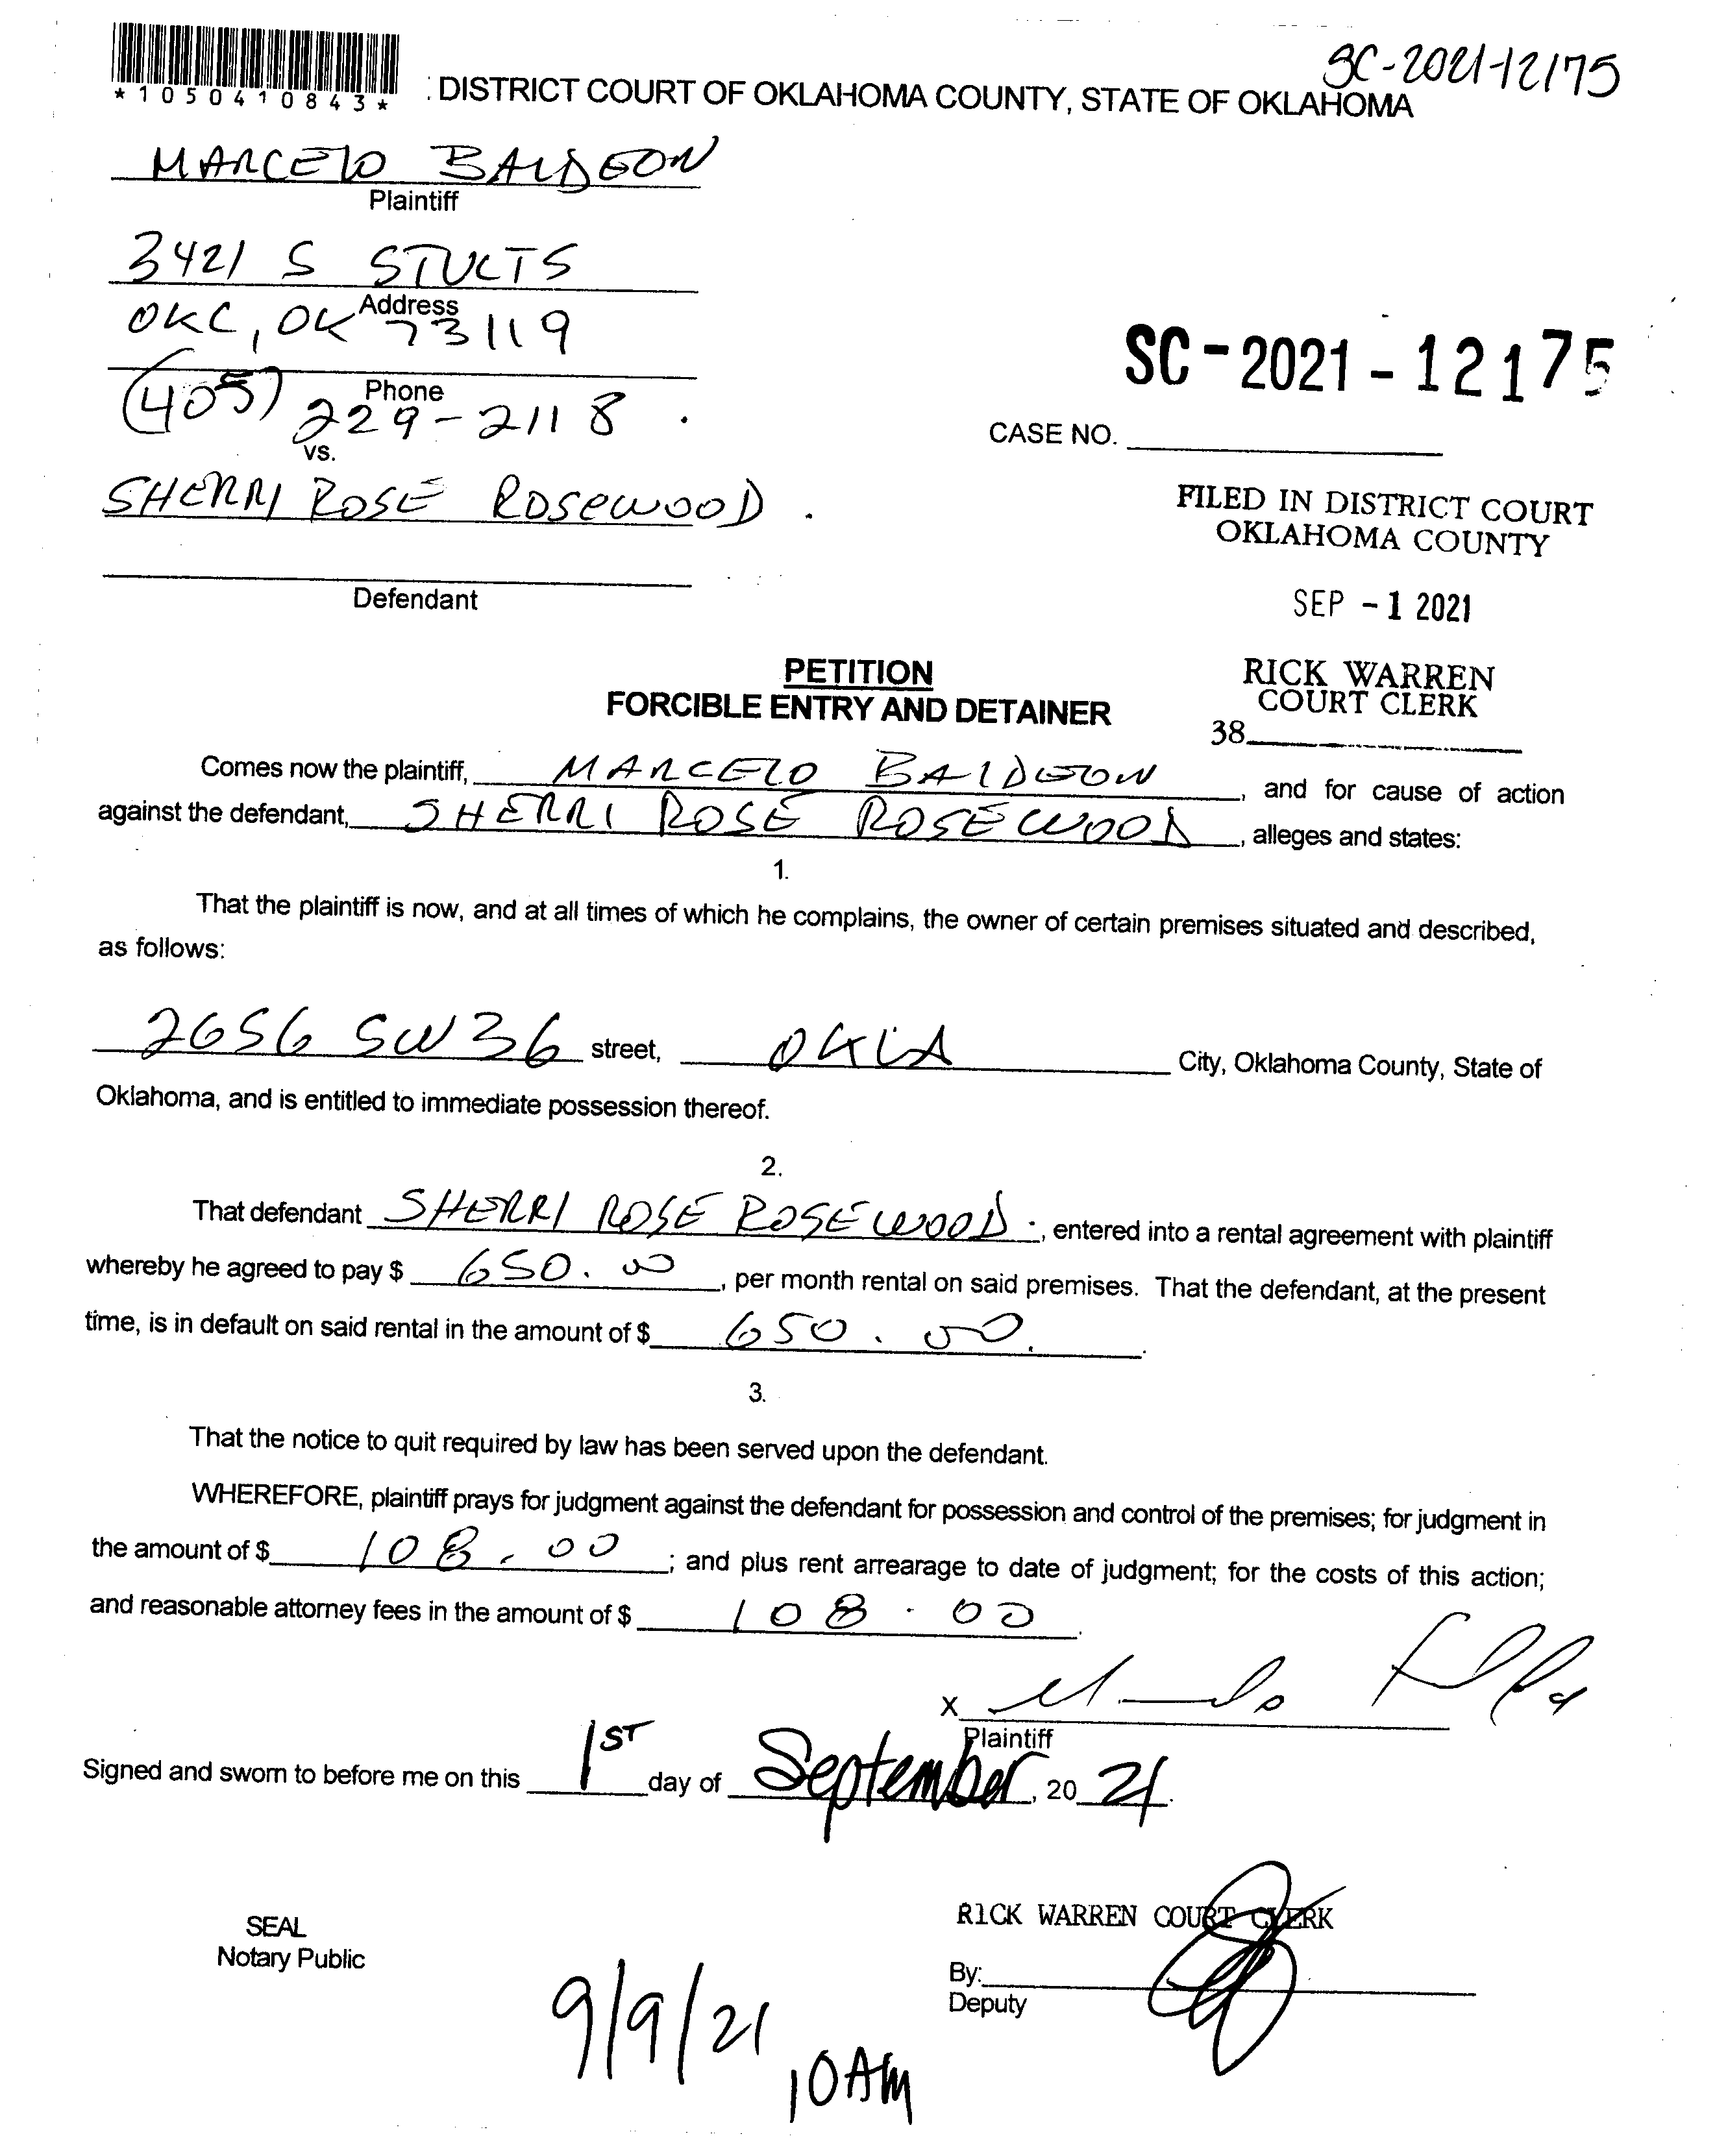 SC-2021-12175
*1050410843*
: DISTRICT COURT OF OKLAHOMA COUNTY, STATE OF OKLAHOMA
MARCELO BALDEON
Plaintiff
3421 S STULTS
Address
OKC, OK 73119
Phone
(405) 229-2118
vs.
SHERRI ROSE ROSEWOOD
Defendant
SC-2021-12175
CASE NO.
FILED IN DISTRICT COURT
OKLAHOMA COUNTY
SEP -1 2021
RICK WARREN
COURT CLERK
38
PETITION
FORCIBLE ENTRY AND DETAINER
Comes now the plaintiff, MARCELO BALDEON, and for cause of action
against the defendant, SHERRI ROSE ROSEWOOD, alleges and states:
1.
That the plaintiff is now, and at all times of which he complains, the owner of certain premises situated and described,
as follows:
2656 SW 36 street, OKLA City, Oklahoma County, State of
Oklahoma, and is entitled to immediate possession thereof.
2.
That defendant SHERRI ROSE ROSEWOOD, entered into a rental agreement with plaintiff
whereby he agreed to pay $ 650.00, per month rental on said premises. That the defendant, at the present
time, is in default on said rental in the amount of $ 650.00.
3.
That the notice to quit required by law has been served upon the defendant.
WHEREFORE, plaintiff prays for judgment against the defendant for possession and control of the premises; for judgment in
the amount of $ 108.00; and plus rent arrearage to date of judgment; for the costs of this action;
and reasonable attorney fees in the amount of $ 108.00.
X
Plaintiff
Signed and sworn to before me on this 1ST day of September, 20 21.
SEAL
Notary Public
RICK WARREN COURT CLERK
By:
Deputy
9/9/21
10AM